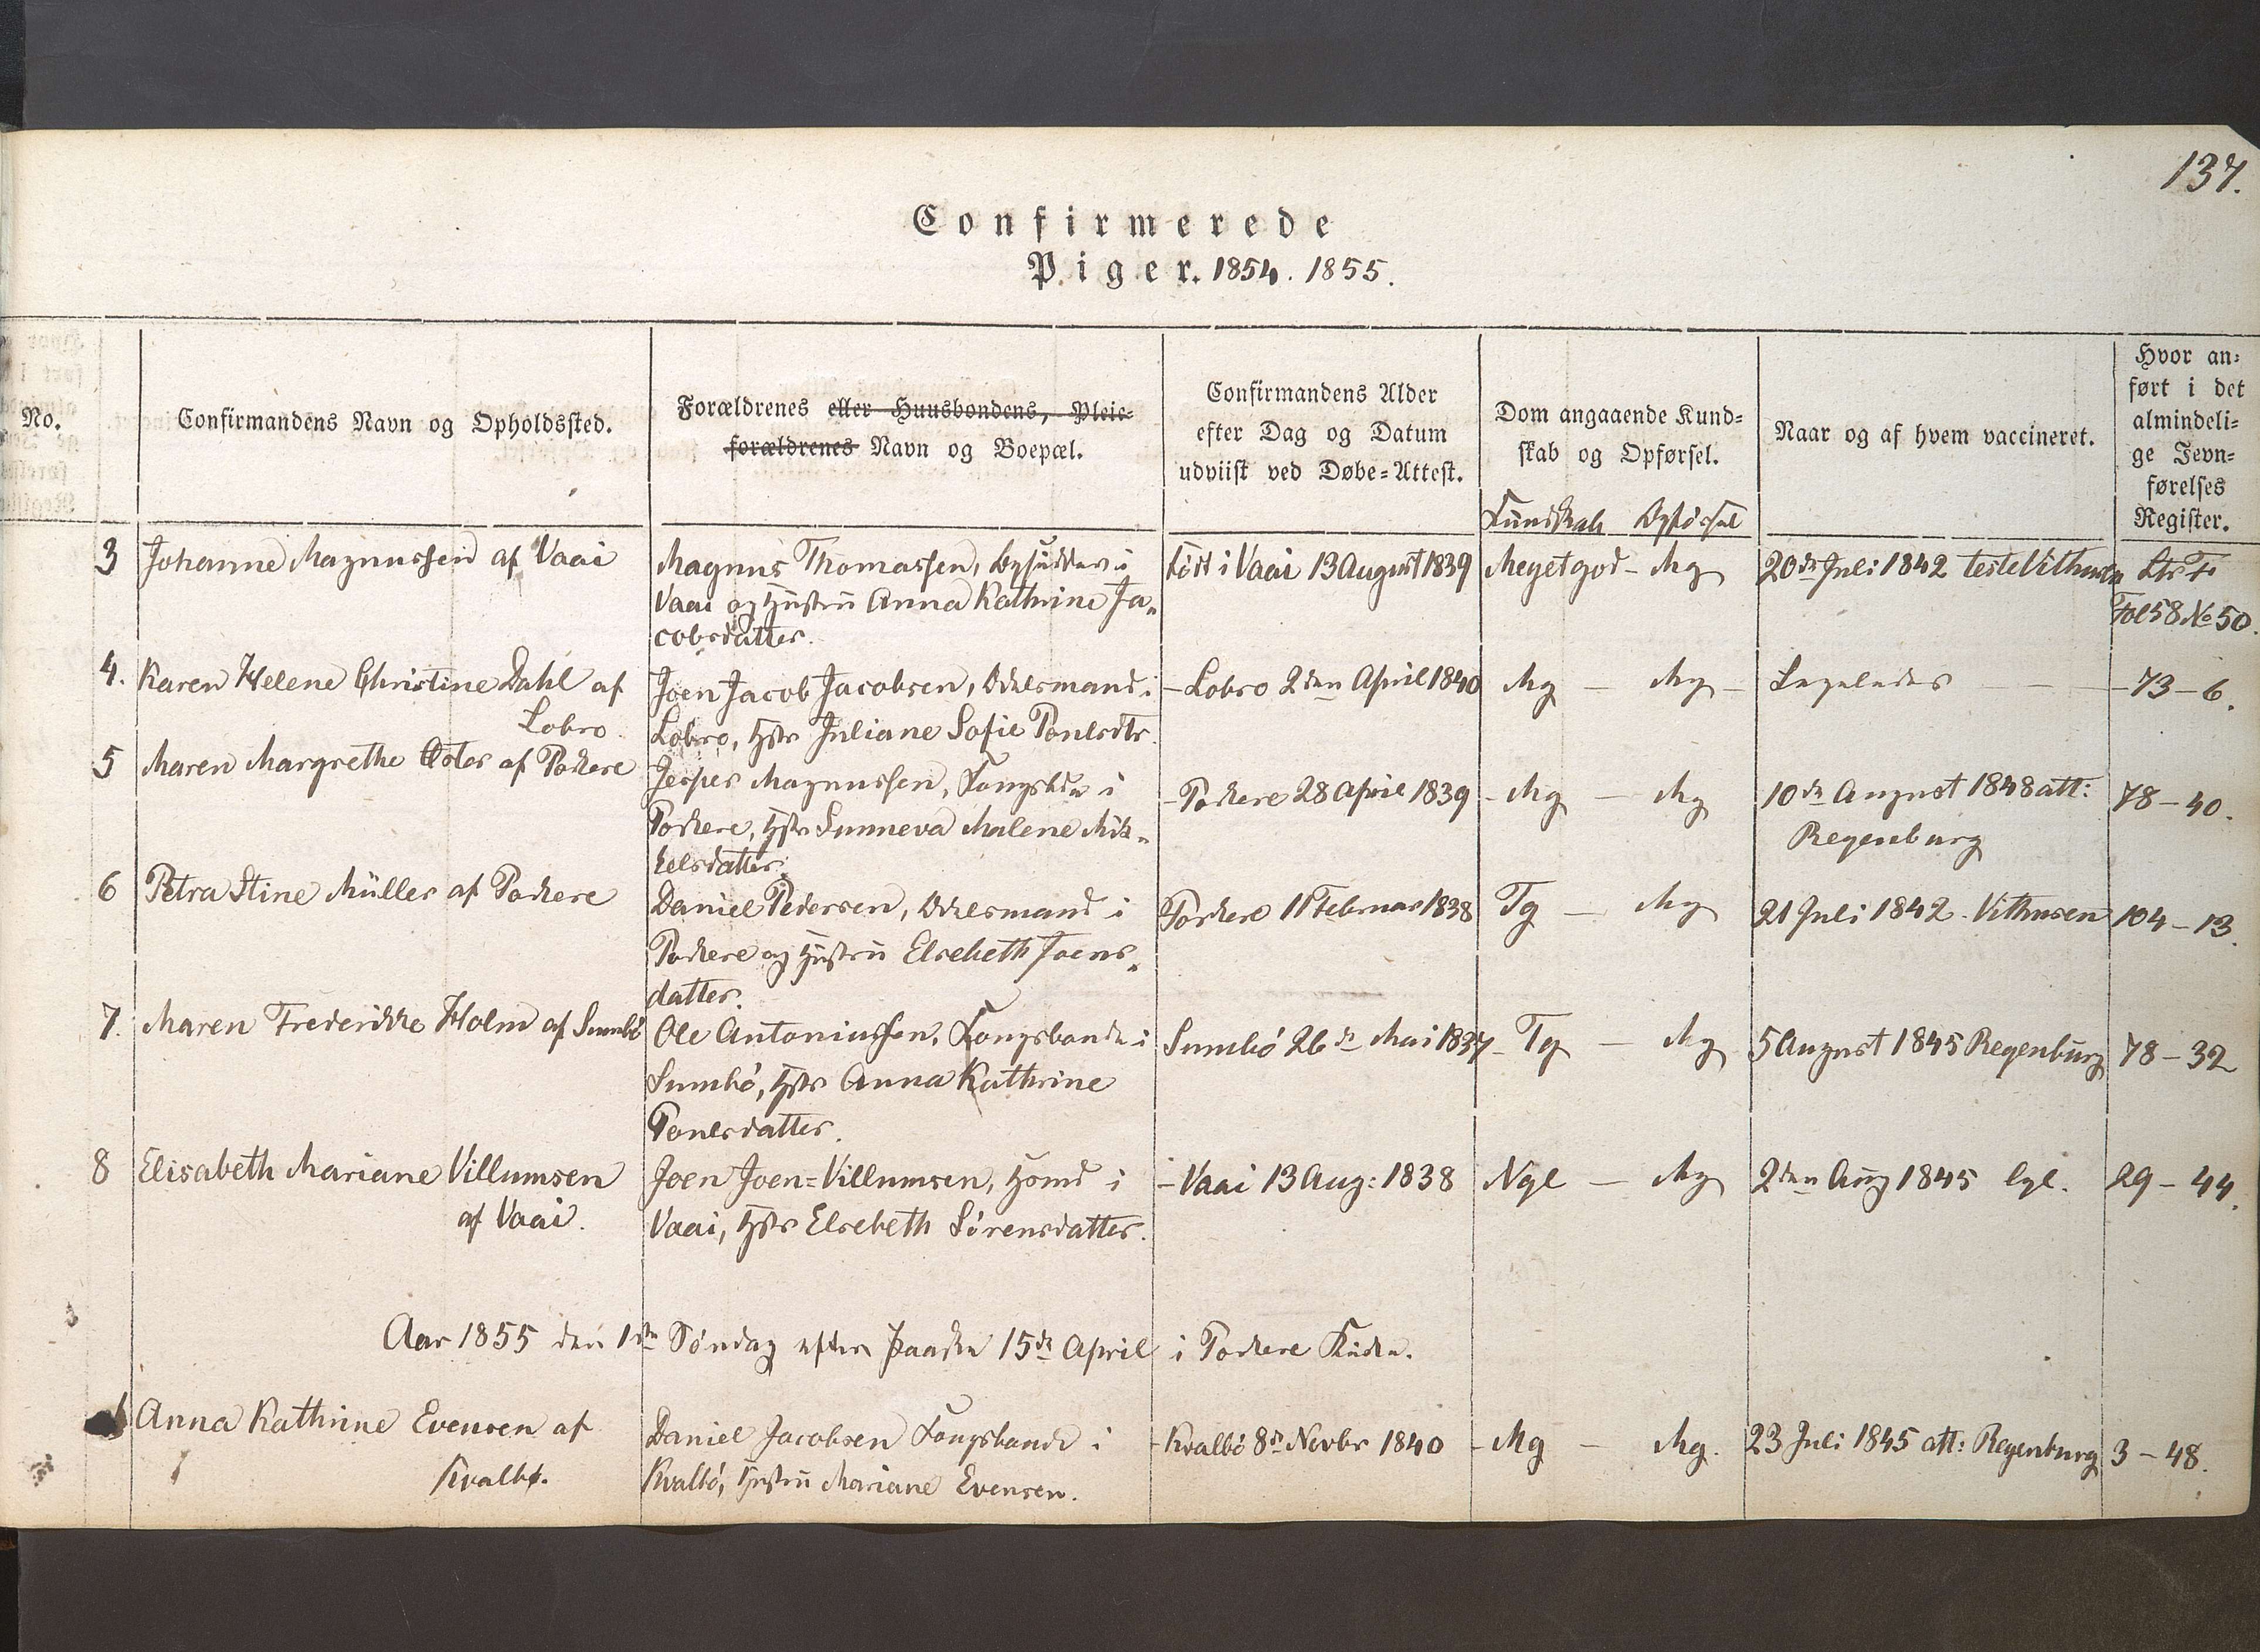 137.
Confirmerede
Piger. 1854. 1855.
No.
Confirmandens Navn og Opholdssted.
Forældrenes eller Huusbondens, Pleie=
forældrenes Navn og Boepæl.
Confirmandens Alder
efter Dag og Datum
udviist ved Døbe=Attest.
Dom angaaende Kund=
skab og Opførsel.
Kundskab Opførsel
Naar og af hvem vaccineret.
Hvor an=
ført i det
almindeli=
ge Jevn=
førelses
Register.
3 Johanne Magnussen af Vaai
Magnus Thomassen, Opsidder i
Vaai og Hustru Anna Kathrine Ja„
cobsdatter.
født i Vaai 13 August 1839
Meget god - Mg
20de Juli 1842 teste Vithusen
Ltr F
Fol 58 No 50.
4. Karen Helene Christine Dahl af
Lobro
Joen Jacob Jacobsen, Odelsmand i
Lobro, Hstr Juliane Sofie Poulsdtr.
- Lobro 2den April 1840
Mg - Mg -
Ligeledes
- 73 - 6.
5 Maren Margrethe Øster af Porkere
Jesper Magnussen, Kongsbde i
Porkere, Hstr Sunneva Malene Mik„
kelsdatter.
- Porkere 28 April 1839
- Mg - Mg
10de August 1848 att:
Regenburg
78 - 40.
6 Petra Stine Müller af Porkere
Daniel Pedersen, Odelsmand i
Porkere og Hustru Elsebeth Joens„
datter.
Porkere 11 Februar 1838
Tg - Mg
21 Juli 1842. Vithusen
104 - 13.
7. Maren Frederikke Holm af Sumbø
Ole Antoniussen, Kongsbonde i
Sumbø, Hstr Anna Kathrine
Poulsdatter.
Sumbø 26de Mai 1837
- Tg - Mg
5 August 1845 Regenburg
78 - 32
8 Elisabeth Mariane Villumsen
af Vaai.
Joen Joen=Villumsen, Hsmd i
Vaai, Hstr Elsebeth Sørensdatter.
- Vaai 13 Aug: 1838
Ngl - Mg
2den Aug 1845 lgl.
29 - 44.
Aar 1855 den 1ste Søndag efter Paaske 15de April i Porkere Kirke.
1 Anna Kathrine Evensen af
Kvalbø.
Daniel Jacobsen Kongsbonde i
Kvalbø, Hustru Mariane Evensen.
- Kvalbø 8de Novbr 1840
- Mg - Mg.
23 Juli 1845 att: Regenburg
3 - 48.